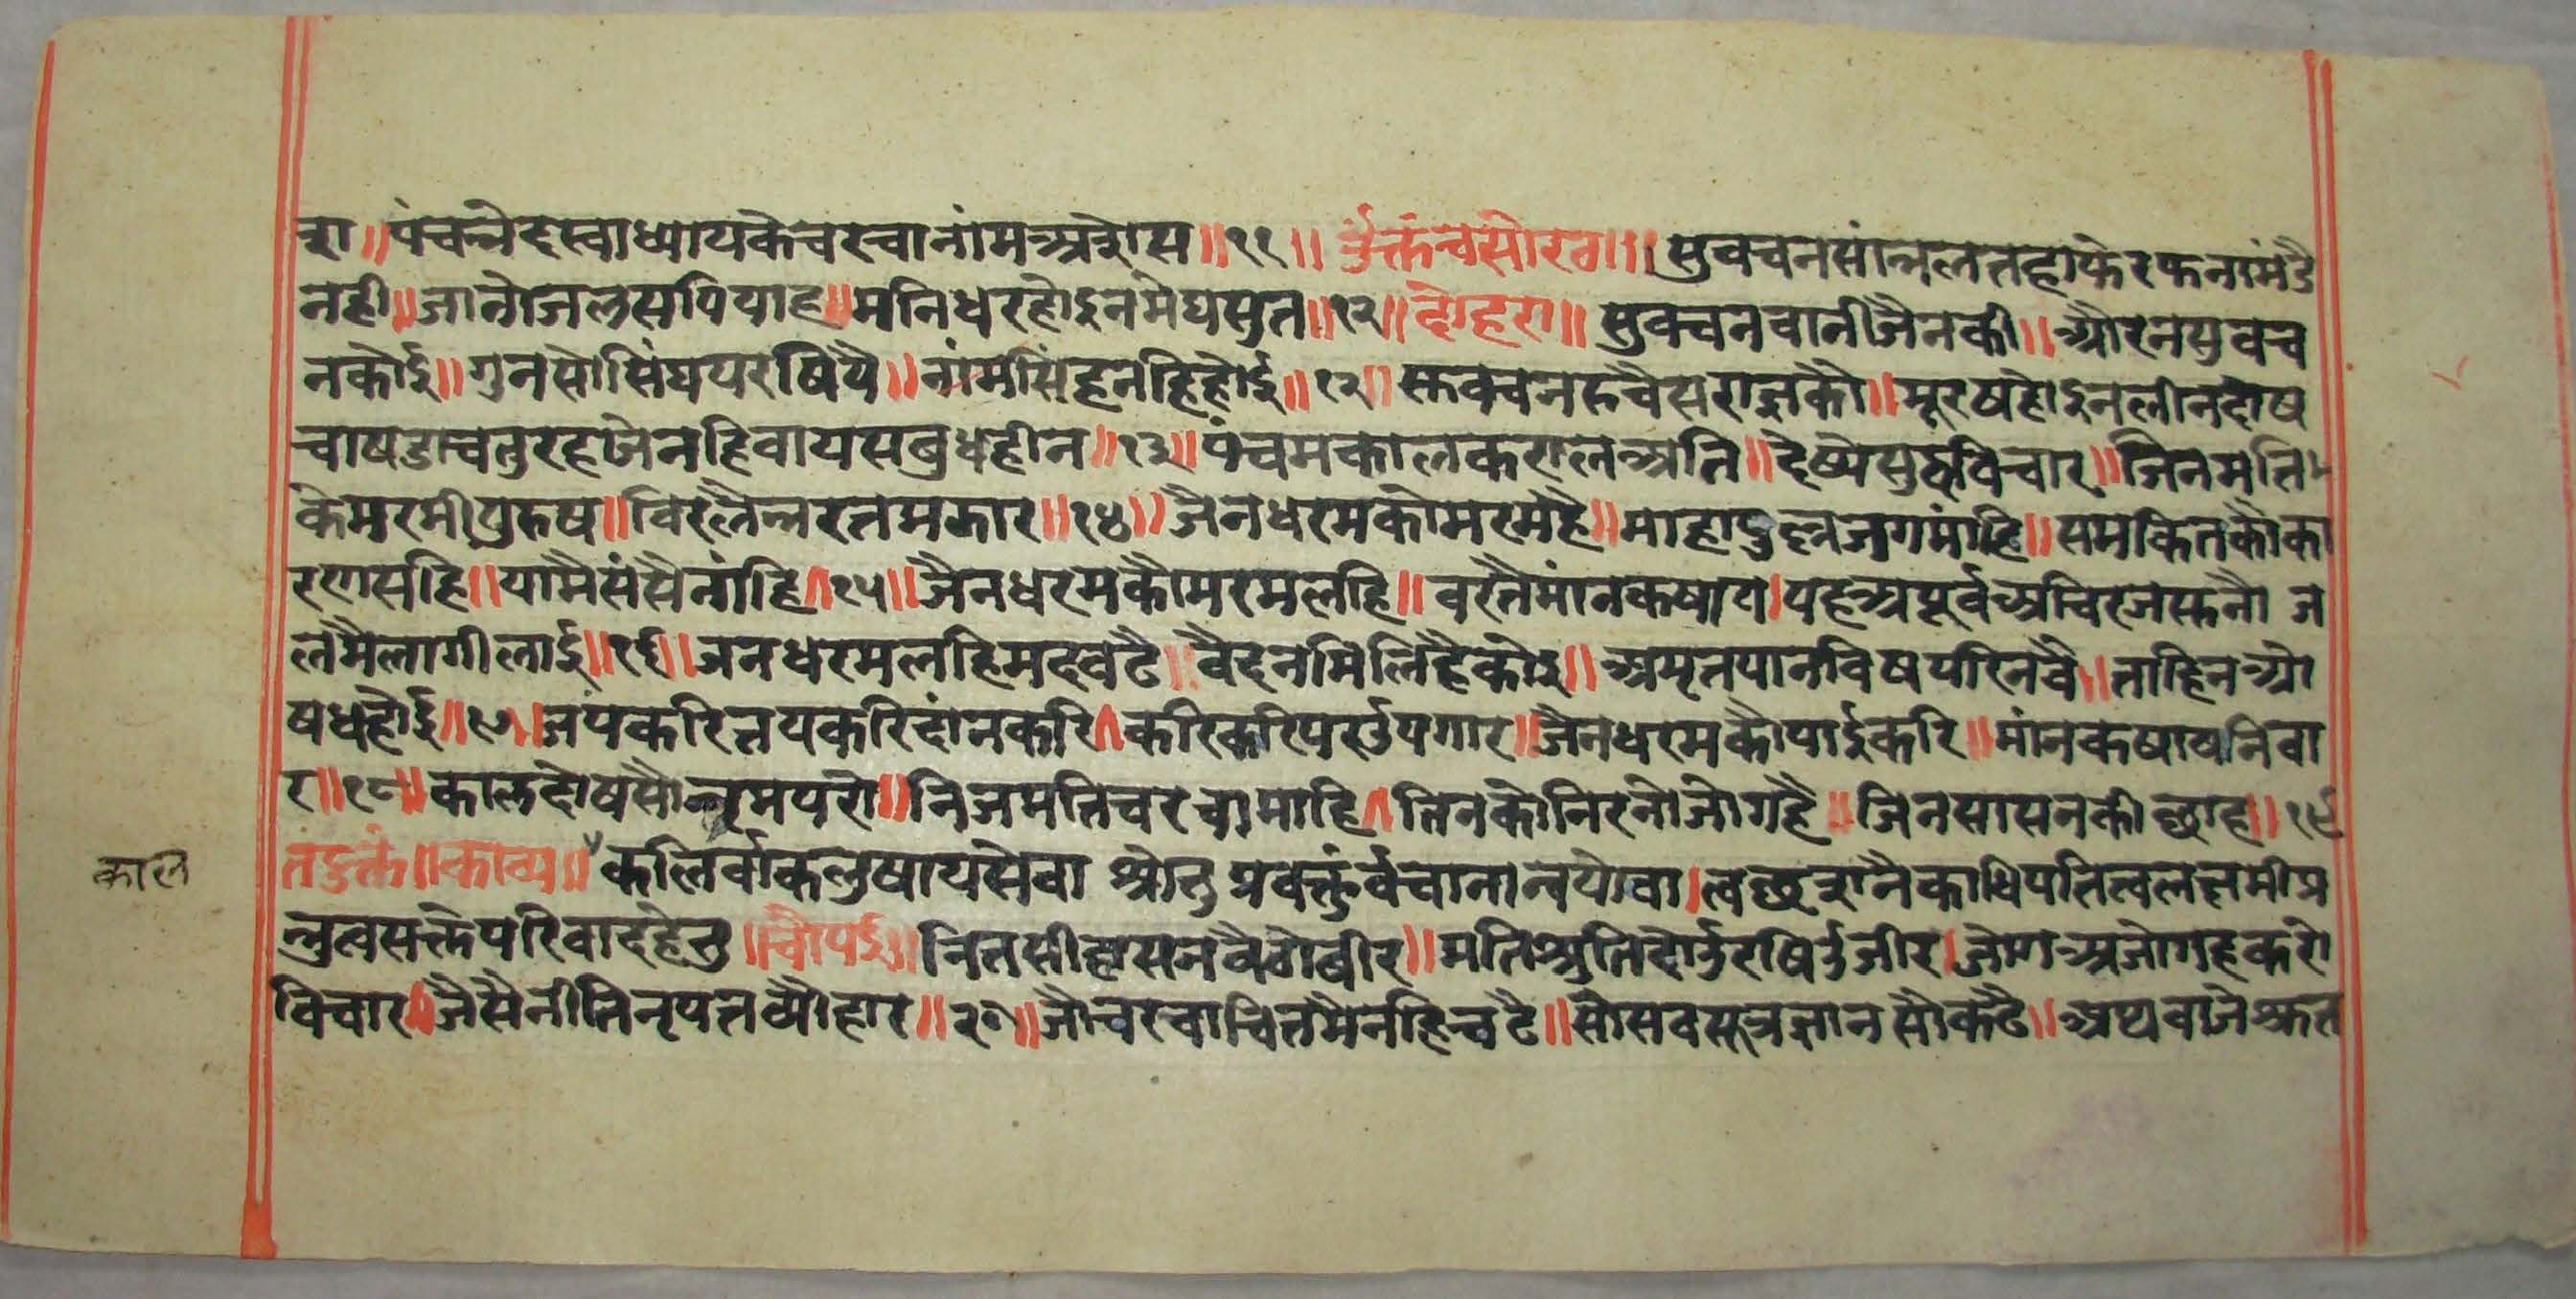 रा॥पंचभेदस्वाध्यायकेचरचानांमअरोस॥११॥उक्तंचसोरठा॥सुवचनसांभलतहाफेरफनामंडै
नही॥जानोजलसपियाह॥मनिधरहोइनमेघसुत॥१२॥दोहरा॥सुवचनवानीजैनकी॥औरनसुवच
नकोई॥गुनसोसिंघपरषियै॥नांमसिंहनहिहोई॥१२॥स्तवचनरुचैसराजकौ॥मूरषहोइनलीनदोष
चाषडाचतुरहजेनहिवायसबुधहीन॥१३॥पंचमकालकरालअति॥देष्योसुरुविचार॥जिनमति
केमरमीपुरुष॥विरलैभरतमझार॥१४॥जैनधरमकोमरमहै॥माहादुल्लभजगमांहि॥समकितकौका
रणसहि॥यामैसंसैनांहि॥१५॥जैनधरमकौमरमलहि॥वरतैमांनकषाय।यहअपूर्वअचिरजस्तनौ ज
लमैलागीलाई॥१६॥जनधरमलहिमदवटै॥वैदनमिलिहैकोइ॥अमृतपानविषपरिनवै॥ताहिनओ
षधहोई॥१७॥जपकरितपकरिदांनकरि॥करिकरिपरउपगार॥जैनधरमकौपाईकरि॥मांनकषायनिवा
र॥१८॥कालदोषसौभ्रमपरो॥निजमतिचरचामाहि॥तिनकोनिरनोजोगहै॥जिनसासनकीछाह॥१९
तंदुक्तं॥काव्य॥कलिर्वाकलुषायसेवा श्रोतु प्रवक्तुंर्वचानानयोवा।त्वछासनैकाधिपतित्वलक्ष्मीप्र
भुत्वसक्तेपरिवादहेतु॥चौपई॥नितसीहासनबैठोबीर॥मतिश्रुतिदोईरषिउजीर।जोगअजोगहकरो
विचार॥जैसैनीतिनृपतव्यौहार॥२०॥जौचरचाचितमैनहिचढै॥सोसबसूत्रज्ञानसौकढै॥अथवाजेश्रुत
काल